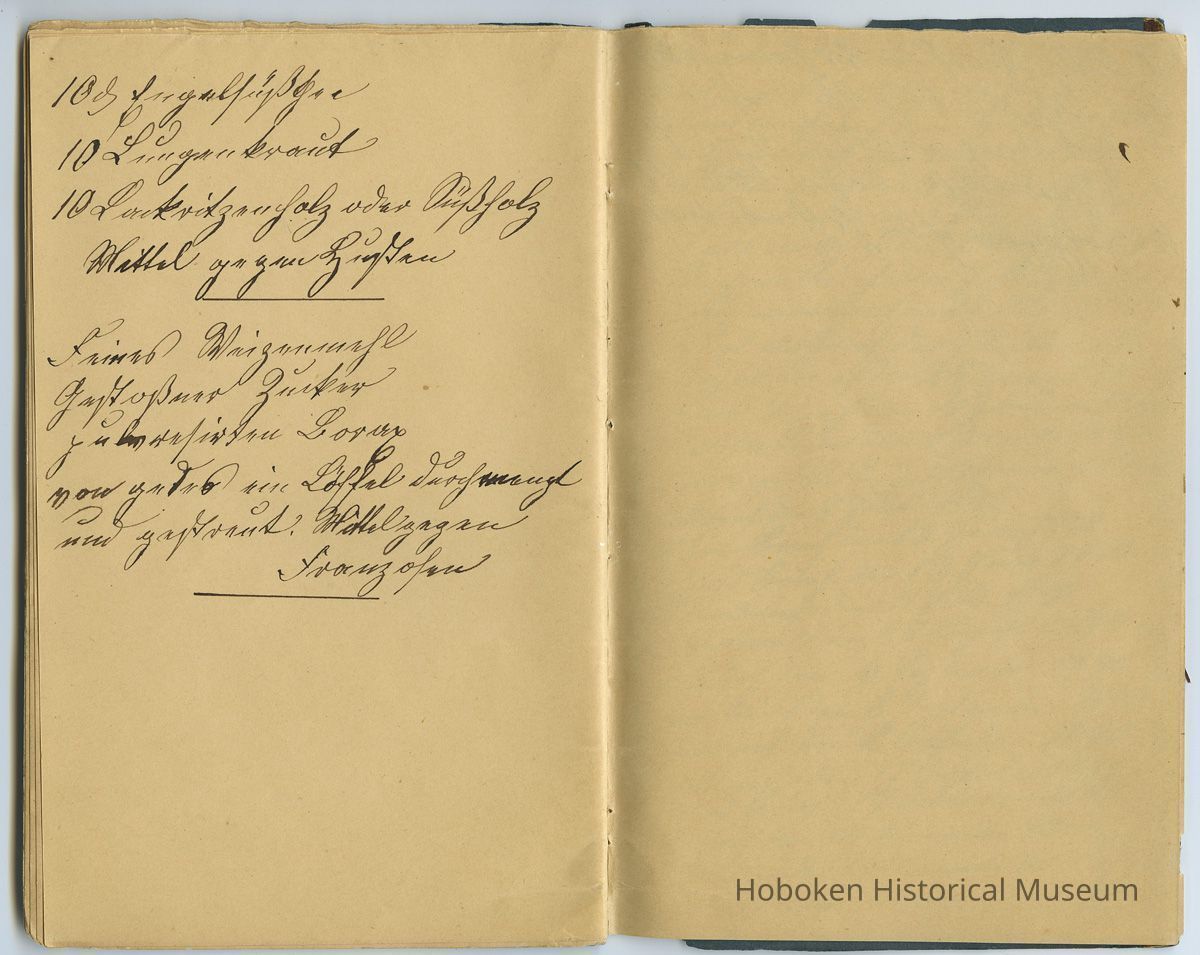 10 ₰ Engelsüßthee
10 Lungenkraut
10 Lackritzenholz oder Süßholz
Mittel gegen Husten
Feines Weizenmehl
Gestoßner Zucker
pulvresirten Borax
von gedes ein Löffel durchmengt
und gestreut. Mittel gegen
Franzosen
Hoboken Historical Museum